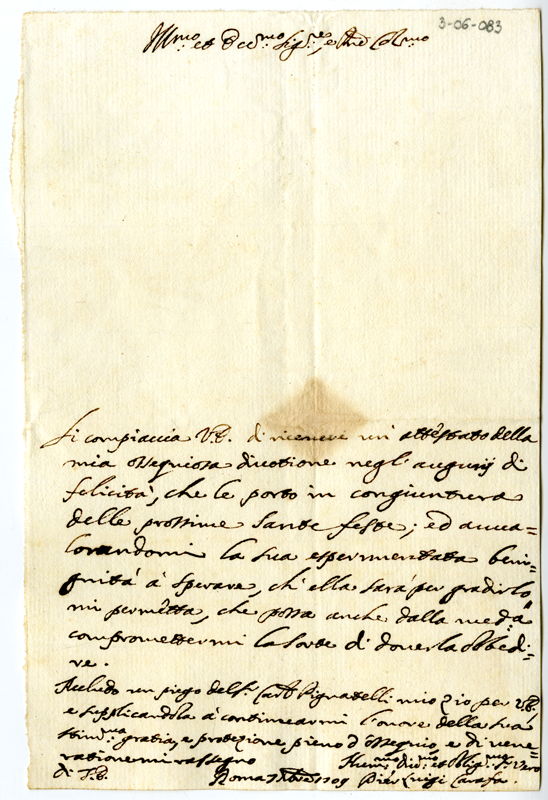 3-06-083
Ill.mo et Ecc.mo Sig.re, e Pne Col.mo
Si compiaccia V.E. di ricevere un' attestato della
mia ossequiosa divotione negl' augurij di
felicità, che le porto in congiuntura
delle prossime Sante feste; ed avva=
lorandomi la sua esperimentata beni=
gnità à sperare, ch' ella sarà per gradirlo
mi permetta, che possa anche dalla med.a
compromettermi la sorte di doverla obbedi=
re.
Accludo un piego del S.r Card. Pignatelli mio zio per V.E.
e supplicandola à continuarmi l'onore della sua
stim.ma gratia, e protezione pieno d'ossequio, e di vene=
ratione mi rassegno
di V.E. Roma 1709 Hum.mo Div.mo et Oblig.mo S.r Vero
Pier Luigi Carafa.